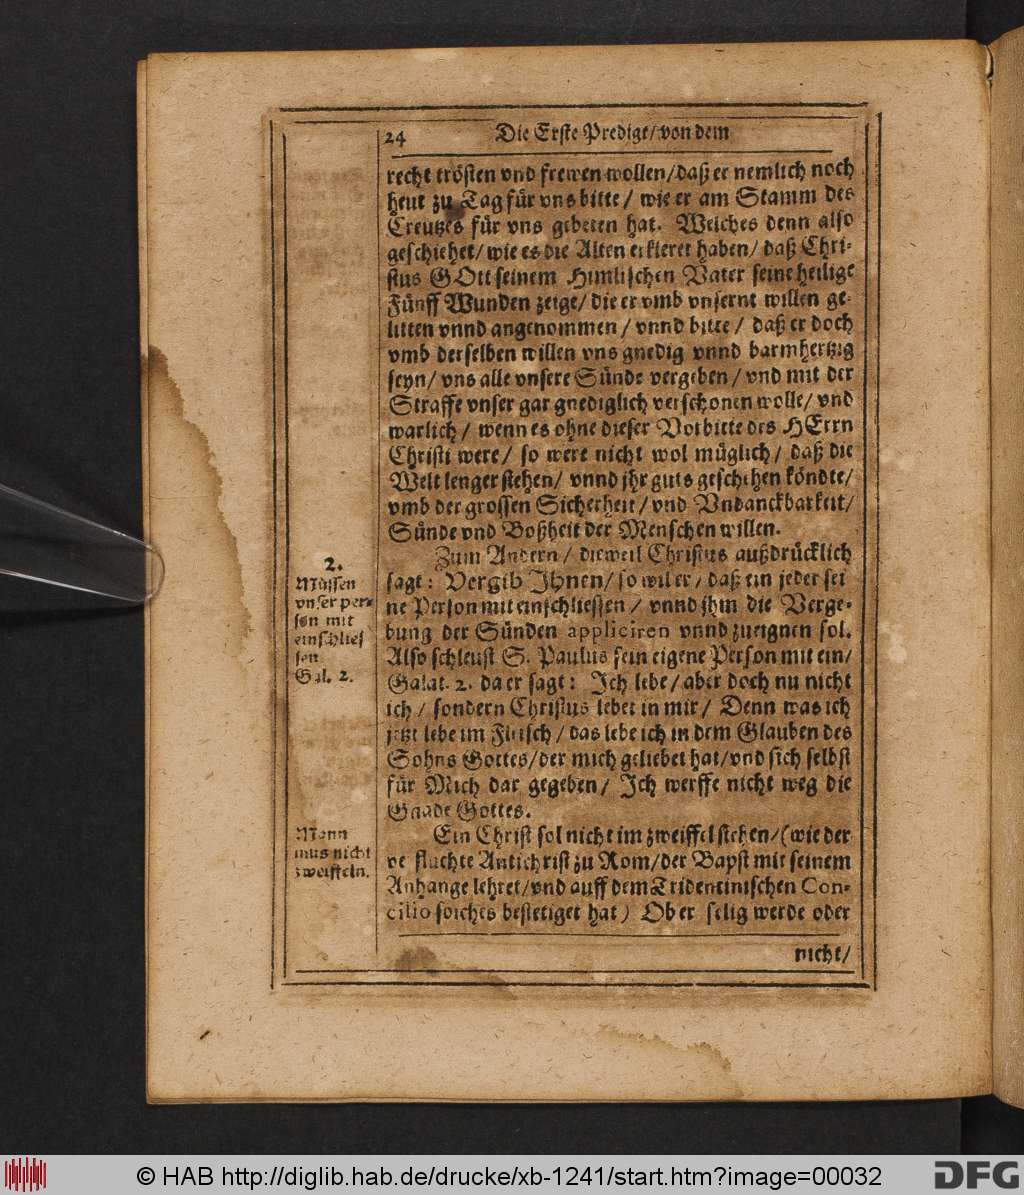 24
Die Erste Predigt/von dem
recht trösten vnd frewen wollen/daß er nemlich noch
heut zu Tag für vns bitte/ wie er am Stamm des
Creutzes für vns gebeten hat. Welches denn also
geschiehet/ wie es die Alten erkleret haben/ daß Chri-
stus GOtt seinem Himlischen Vater seine heilige
Fünff Wunden zeige/ die er vmb vnsernt willen ge-
litten vnnd angenommen/ vnnd bitte/ daß er doch
vmb derselben willen vns gnedig vnnd barmhertzig
seyn/ vns alle vnsere Sünde vergeben/ vnd mit der
Straffe vnser gar gnediglich verschonen wolle/ vnd
warlich/ wenn es ohne dieser Vorbitte des HErrn
Christi were/ so were nicht wol müglich/ daß die
Welt lenger stehen/ vnnd jhr guts geschehen köndte/
vmb der grossen Sicherheit/ vnd Vndanckbarkeit/
Sünde vnd Boßheit der Menschen willen.
2.
Müssen
vnser per-
son mit
einschlies
sen
Gal. 2.
Zum Andern/ dieweil Christus außdrücklich
sagt: Vergib Ihnen/ so wil er/ daß ein jeder sei
ne Person mit einschliessen/ vnnd jhm die Verge-
bung der Sünden appliciren vnnd zueignen sol.
Also schleust S. Paulus sein eigene Person mit ein/
Galat. 2. da er sagt: Ich lebe/ aber doch nu nicht
ich/ sondern Christus lebet in mir/ Denn was ich
jetzt lebe im Fleisch/ das lebe ich in dem Glauben des
Sohns Gottes/der mich geliebet hat/vnd sich selbst
für Mich dar gegeben/ Ich werffe nicht weg die
Gnade Gottes.
Mann
mus nicht
zweiffeln.
Ein Christ sol nicht im zweiffel stehen/(wie der
ve fluchte Antichrist zu Rom/der Bapst mit seinem
Anhange lehret/vnd auff dem Tridentinischen Con-
cilio solches bestetiget hat) Ob er selig werde oder
nicht/
© HAB http://diglib.hab.de/drucke/xb-1241/start.htm?image=00032
DFG